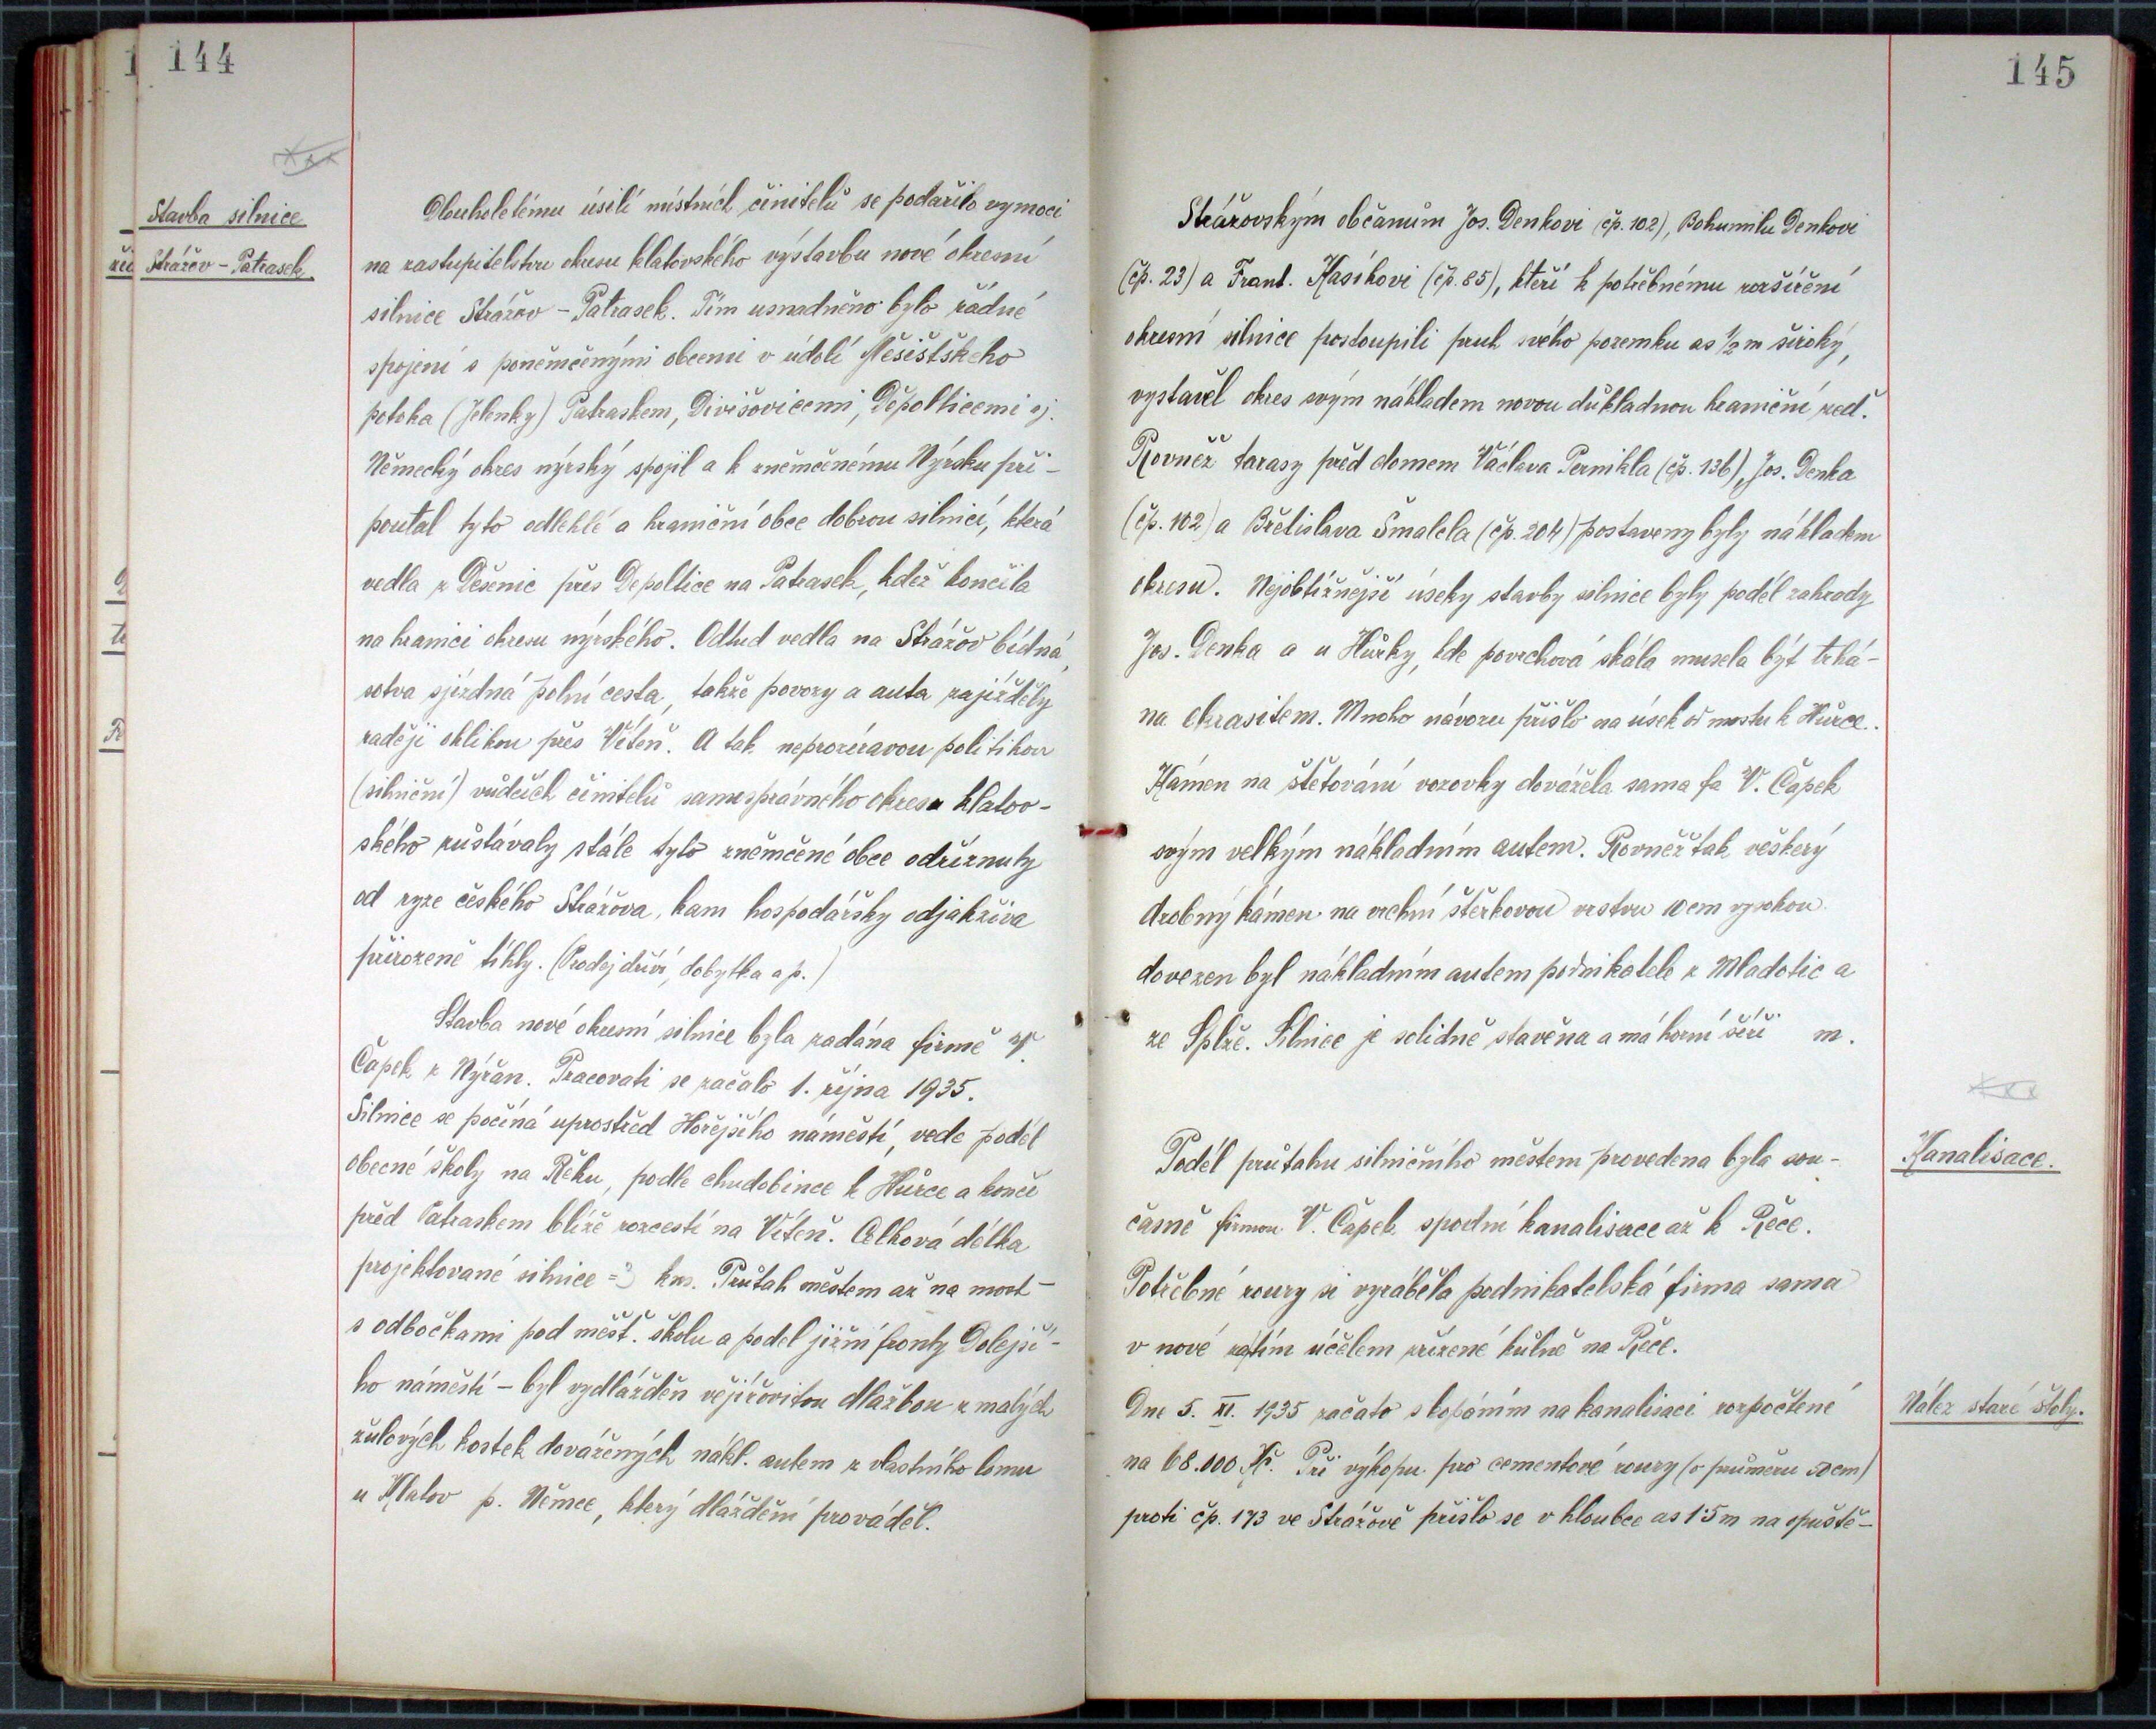 144
Stavba silnice
Strážov - Patrasek
Dlouholetému úsilí místních činitelů se podařilo vymoci
na zastupitelstvu okresu klatovského výstavbu nové okresní
silnice Strážov - Patrasek. Tím usnadněno bylo řádné
spojení s poněmčenými obcemi v údolí Měšišťskeho
potoka (Jelenky) Patraskem, Divišovicemi, Děpolticemi aj.
Německý okres nýrský spojil a k zněmčenému Nýrsku při-
poutal tyto odlehlé a hraniční obce dobrou silnicí, která
vedla z Děšenic přes Depoltice na Patrasek, kdež končila
na hranici okresu nýrského. Odtud vedla na Strážov bídná,
sotva sjízdná polní cesta, takže povozy a auta zajížděly
raději oklikou přes Víteň. A tak neprozíravou politikou
(silniční) vůdčích činitelů samosprávného okresu klatov-
ského zůstávaly stále tyto zněmčené obce odříznuty
od ryze českého Strážova, kam hospodářsky odjakživa
přirozeně tíhly. (Prodej dříví, dobytka ap.)
Stavba nové okresní silnice byla zadána firmě V.
Čapek z Nýřan. Pracovati se začalo 1. října 1935.
Silnice se počíná uprostřed Hořejšího náměstí, vede podél
obecné školy na Řéku, podle chudobince k Hůrce a končí
před Patraskem blíže rozcestí na Víteň. Celková délka
projektované silnice = km. Průtah městem až na most -
s odbočkami pod měšť. školu a podel jižní fronty Dolejší-
ho náměstí - byl vydlážděn vějířovitou dlažbou z malých
žulových kostek dovážených nákl. autem z vlastního lomu
u Klatov p. Němce, který dláždění prováděl.
145
Strážovským občanům Jos. Denkovi (čp. 102), Bohumilu Denkovi
(čp. 23) a Frant. Kasíkovi (čp. 85), kteří k potřebnému rozšíření
okresní silnice postoupili pruh svého pozemku as ½ m široký,
vystavěl okres svým nákladem novou důkladnou hraniční zeď.
Rovněž tarasy před domem Václava Pernikla (čp. 136), Jos. Denka
(čp. 102) a Břetislava Šmalcla (čp. 204) postaveny byly nákladem
okresu. Nejobtížnější úseky stavby silnice byly podél zahrady
Jos. Denka a u Hůrky, kde povrchová skála musela být trhá-
na chrasitem. Mnoho návozu přišlo na úsek od mostu k Hůrce.
Kámen na štětování vozovky dovážela sama fa V. Čapek
svým velkým nákladním autem. Rovněž tak veškerý
drobný kámen na vrchní štěrkovou vrstvu 10 cm vysokou
dovezen byl nákladním autem podnikatele z Mladotic a
ze Splže. Silnice je solidně stavěna a má horní šíři m.
Kanalisace.
Podél průtahu silničního městem provedena byla sou-
časně firmou V. Čapek spodní kanalisace až k Řéce.
Potřebné roury si vyráběla podnikatelská firma sama
v nové zatím účelem zřízené kůlně na Řece.
Nález staré štoly.
Dne 5. XI. 1935 začato s kopáním na kanalisaci rozpočtené
na 68.000 Kč. Při výkopu pro cementové roury (o průměru 50 cm)
proti čp. 173 ve Strážově přišlo se v hloubce as 1·5 m na opuště-